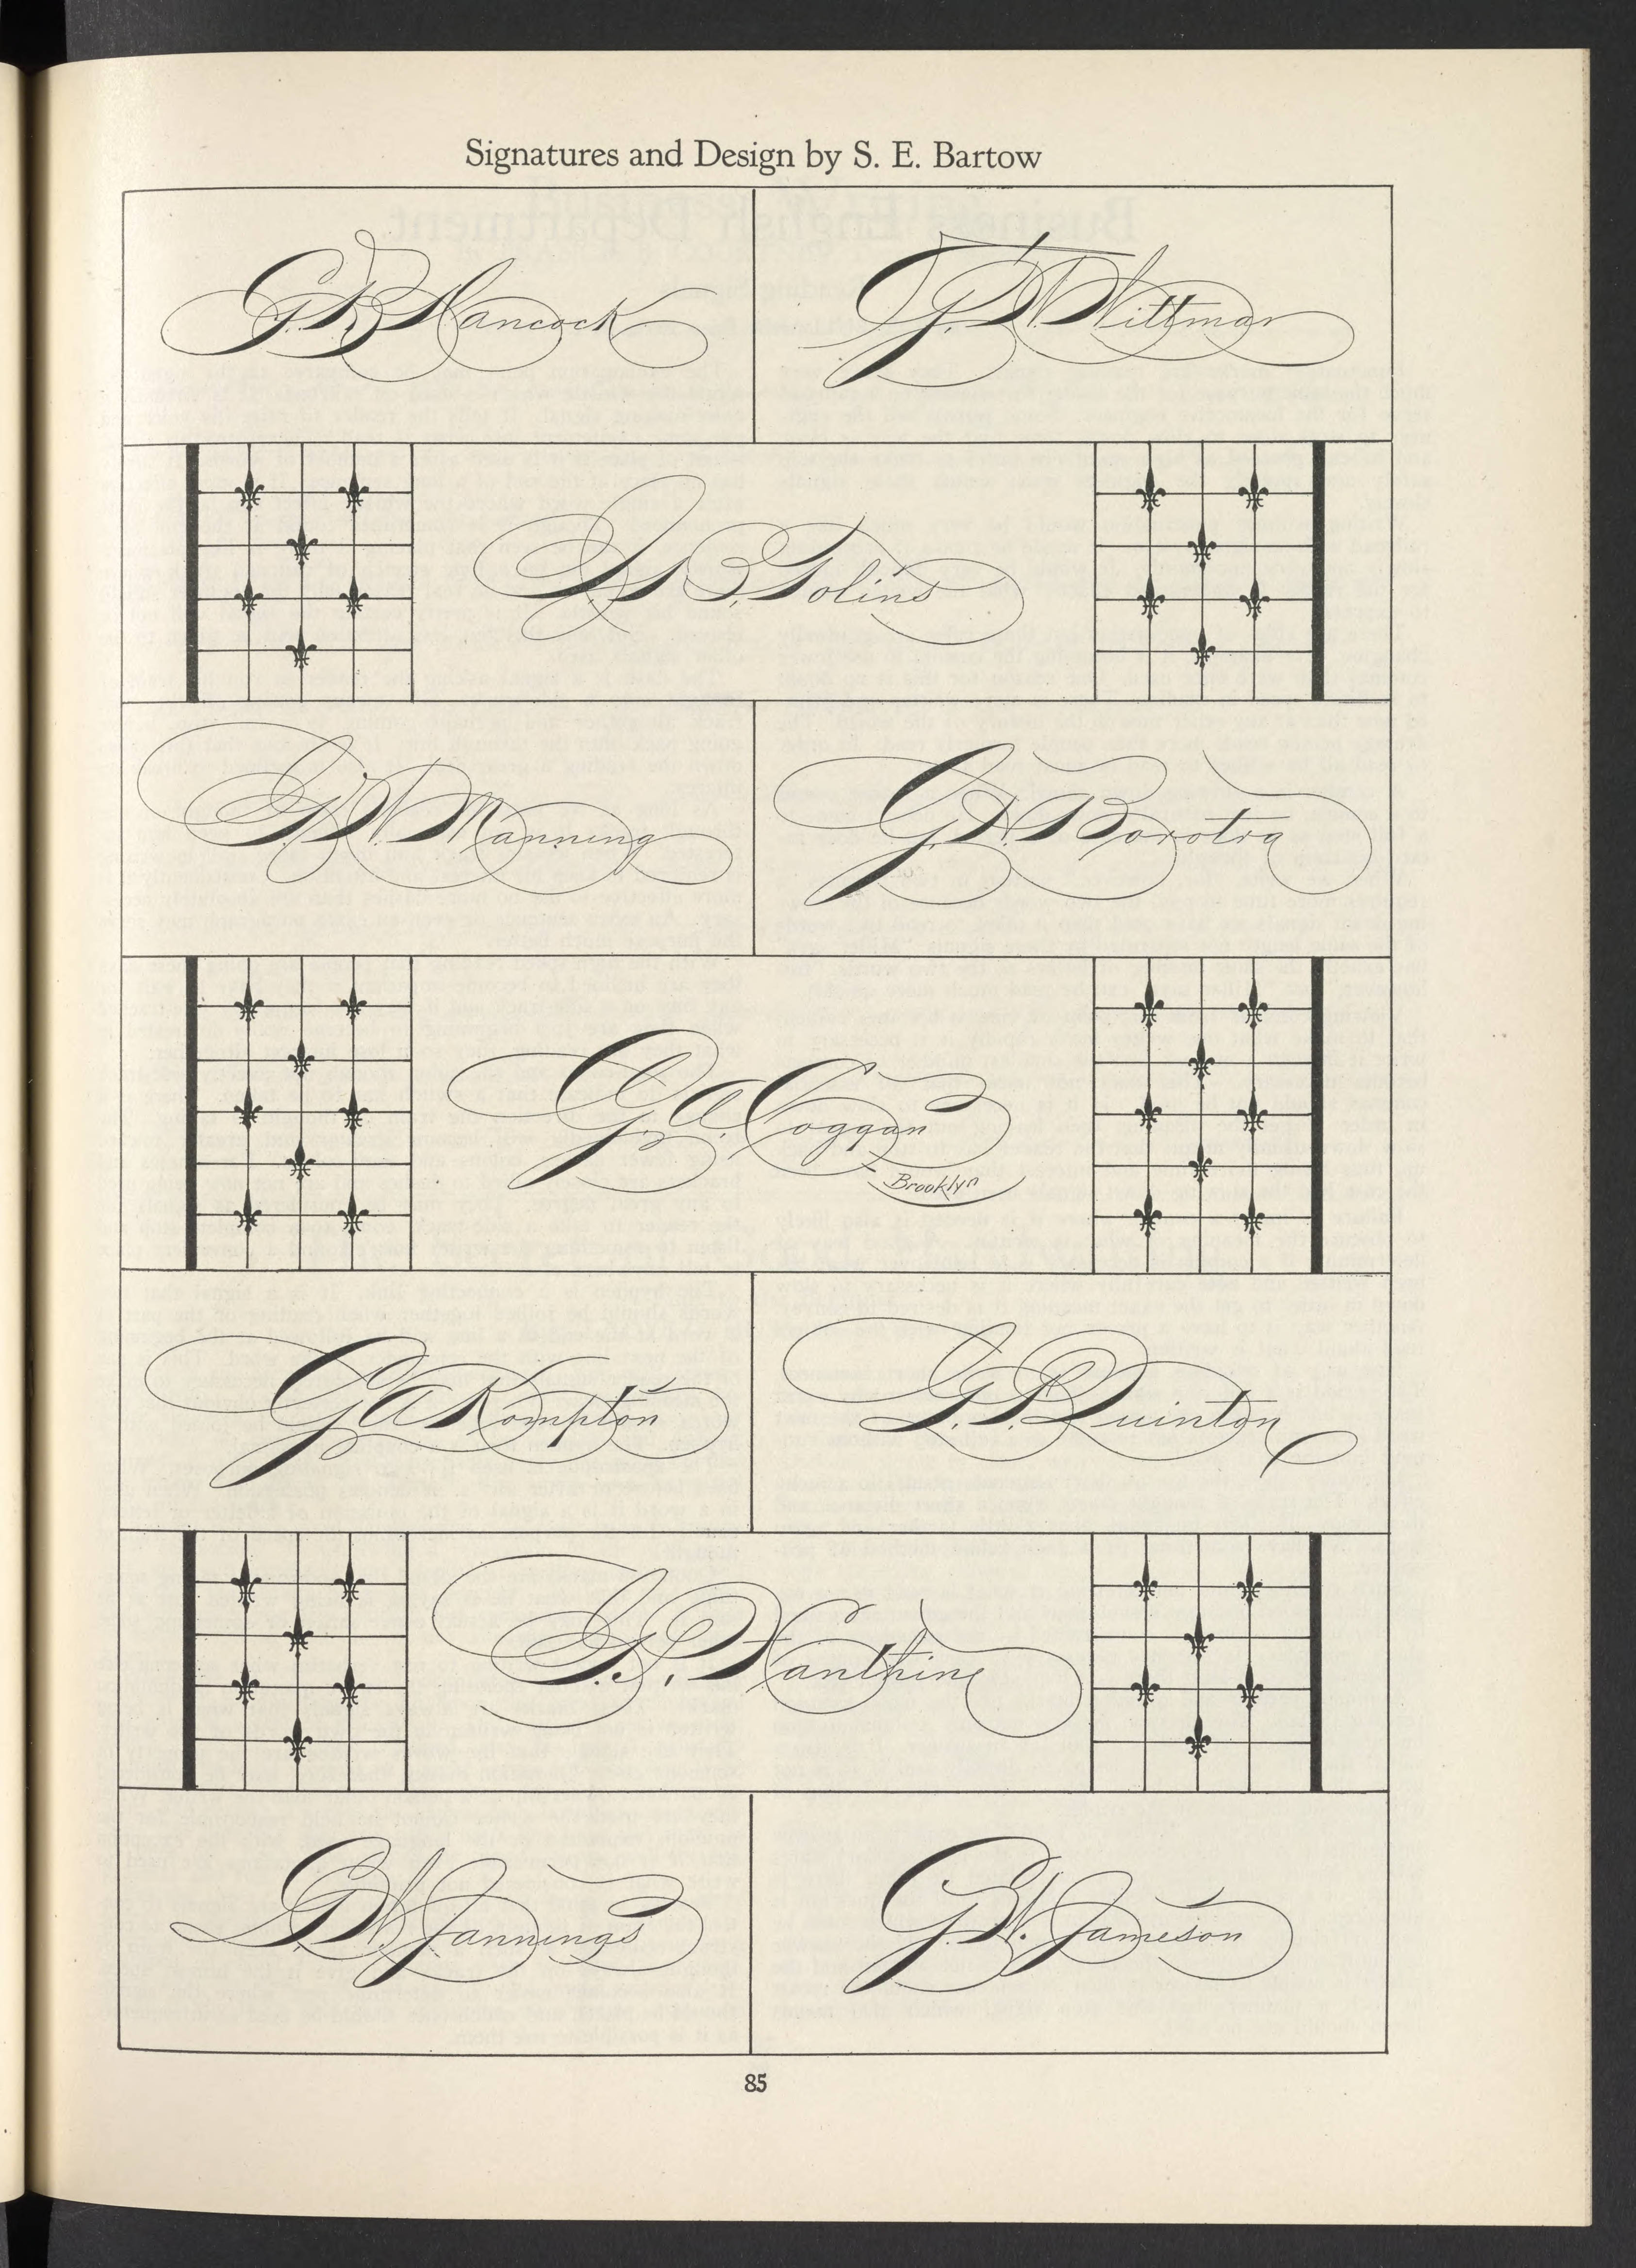 Signatures and Design by S. E. Bartow
G. B. Hancock
G. W. Wittman
S. B. Tolins
G. W. Manning
G. H. Borotra
G. A. Coggan
Brooklyn
G. A. Kompton
G. P. Quinton
G. P. Xanthine
G. W. Jannings
G. W. Jameson
85